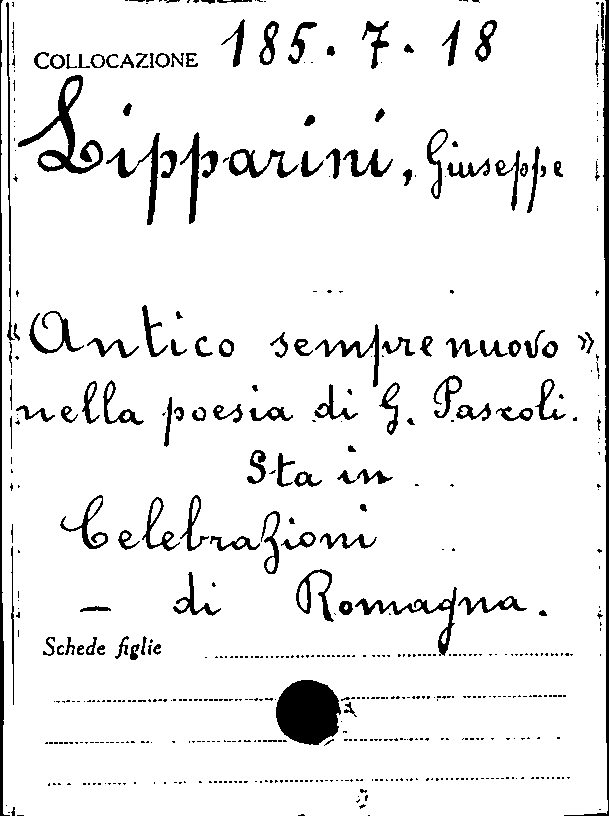 COLLOCAZIONE 185.7.18
Lipparini, Giuseppe
«Antico sempre nuovo»
nella poesia di G. Pascoli.
Sta in
Celebrazioni
— di Romagna.
Schede figlie